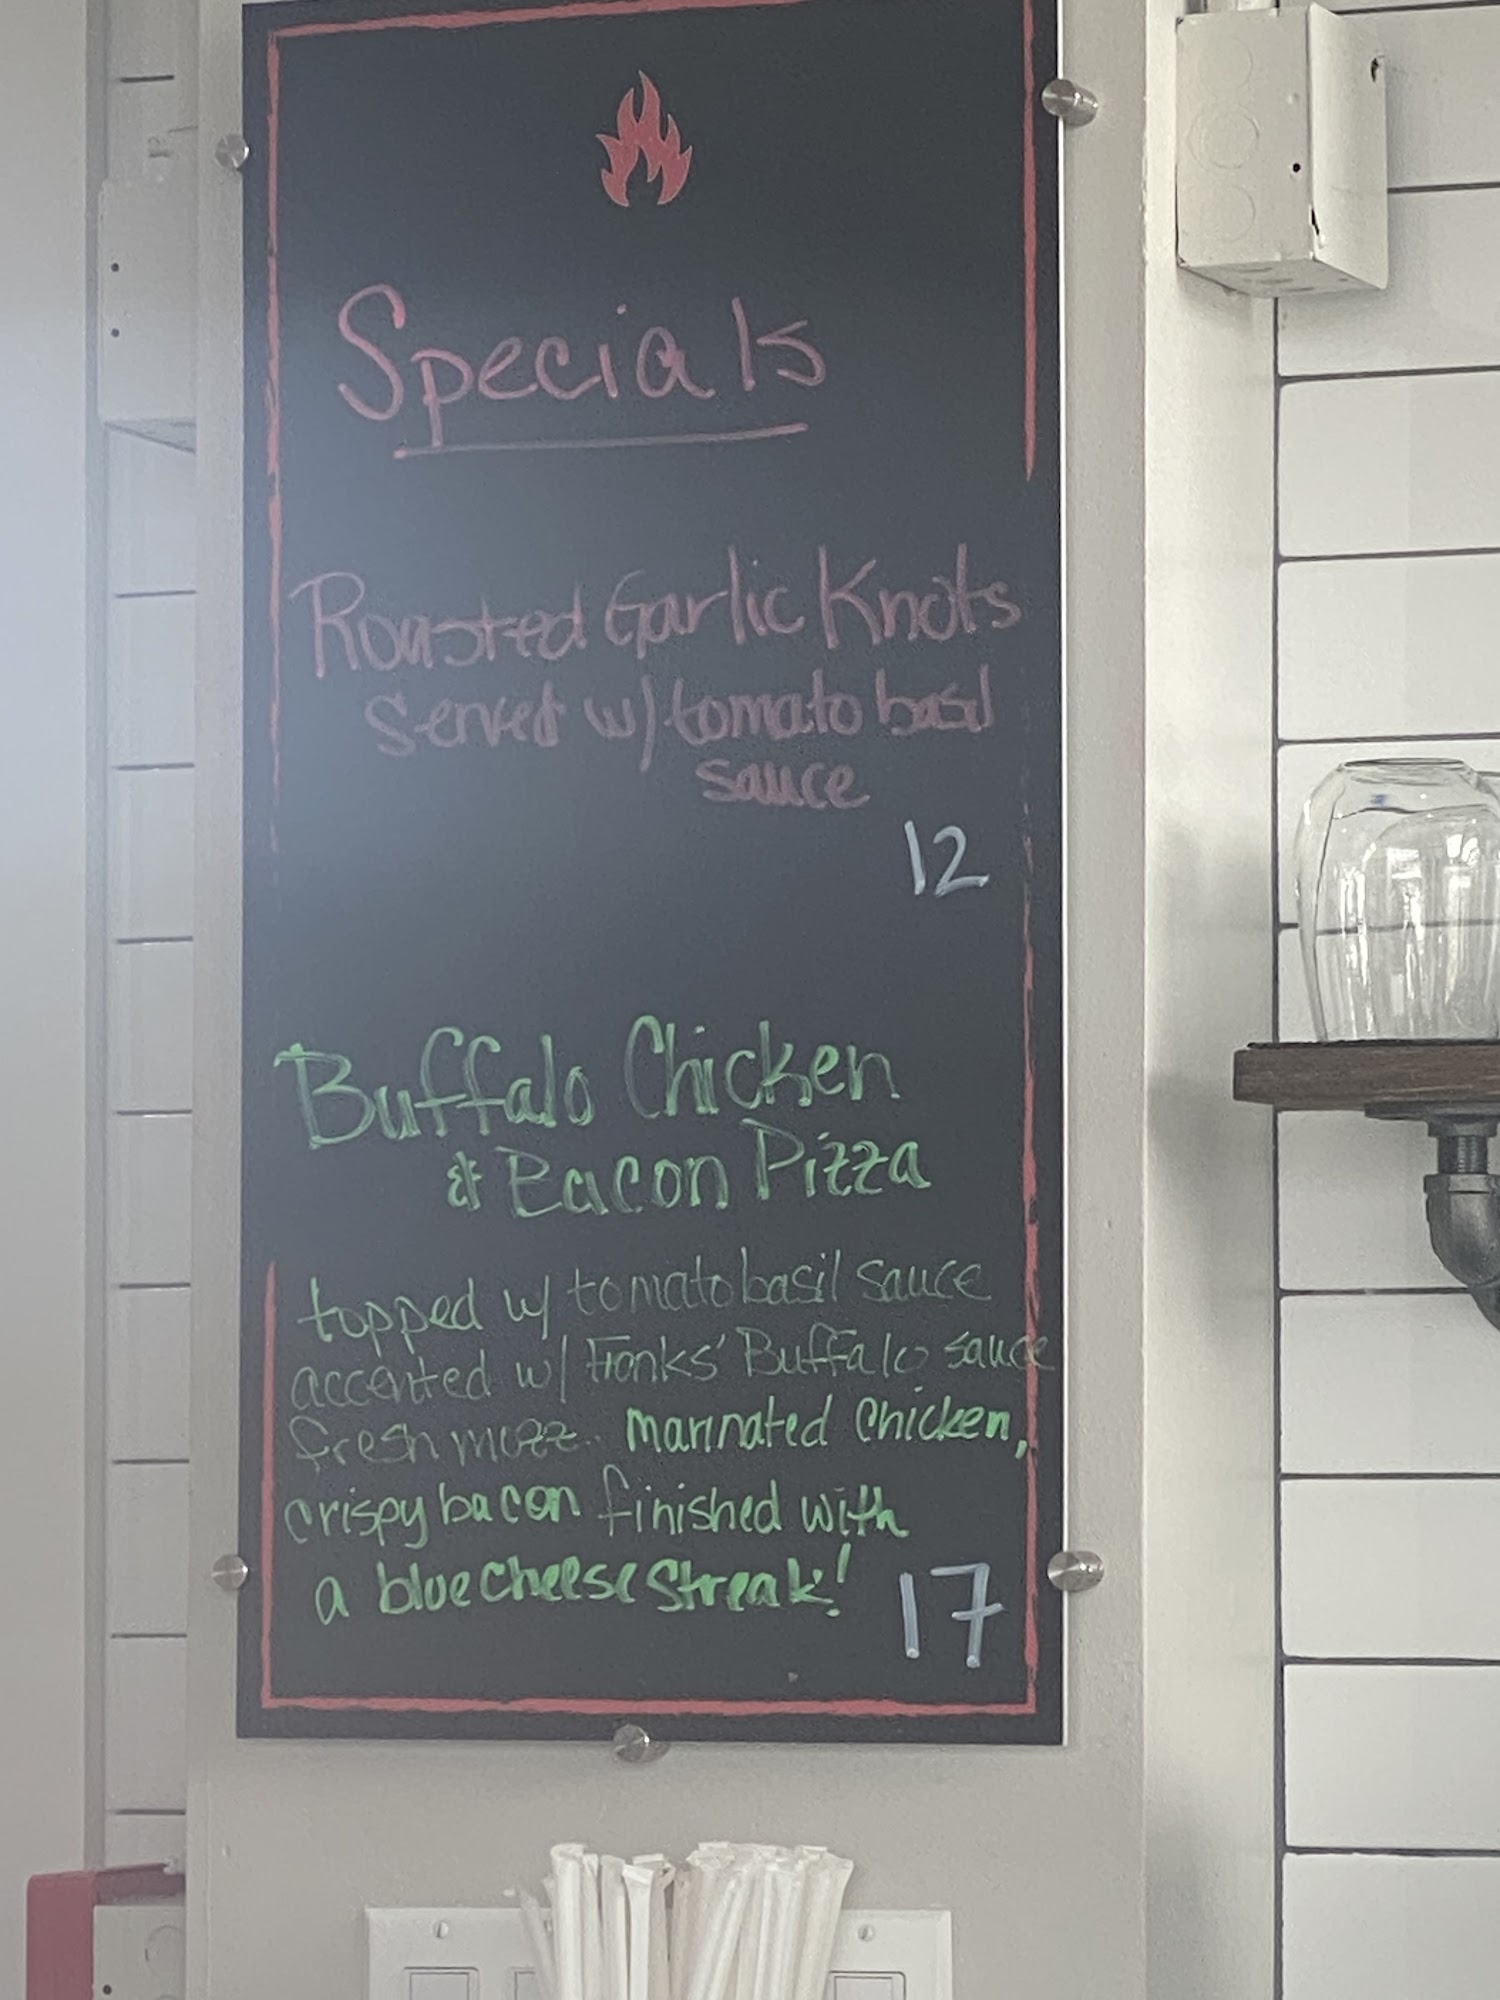 Specials
Roasted Garlic Knots
served w/ tomato basil
sauce
12
Buffalo Chicken
& Bacon Pizza
topped w/ tomato basil sauce
accented w/ Franks' Buffalo sauce
fresh mozz. marinated chicken,
crispy bacon finished with
a blue cheese streak!
17